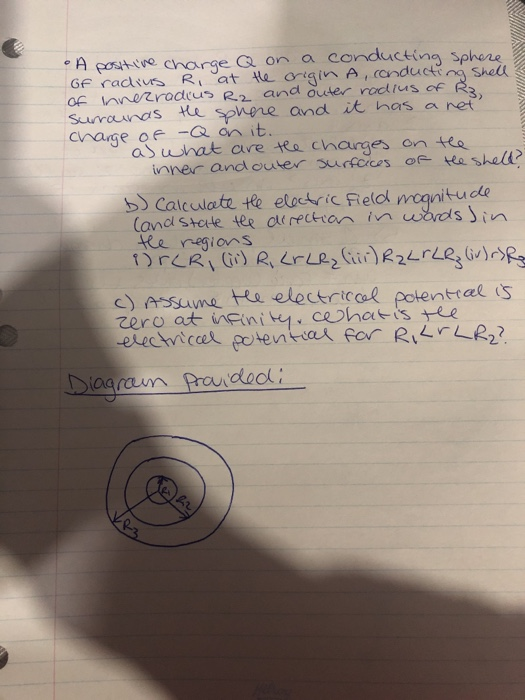 • A positive charge Q on a conducting sphere
of radius R1 at the origin A, conducting shell
of inner radius R2 and outer radius of R3,
surrounds the sphere and it has a net
charge of -Q on it.
a) what are the charges on the
inner and outer surfaces of the shell?
b) Calculate the electric field magnitude
(and state the direction in words) in
the regions
i) r<R1 (ii) R1<r<R2 (iii) R2<r<R3 (iv) r>R3
c) Assume the electrical potential is
zero at infinity. What is the
electrical potential for R1<r<R2?
Diagram Provided:
R1
R2
R3